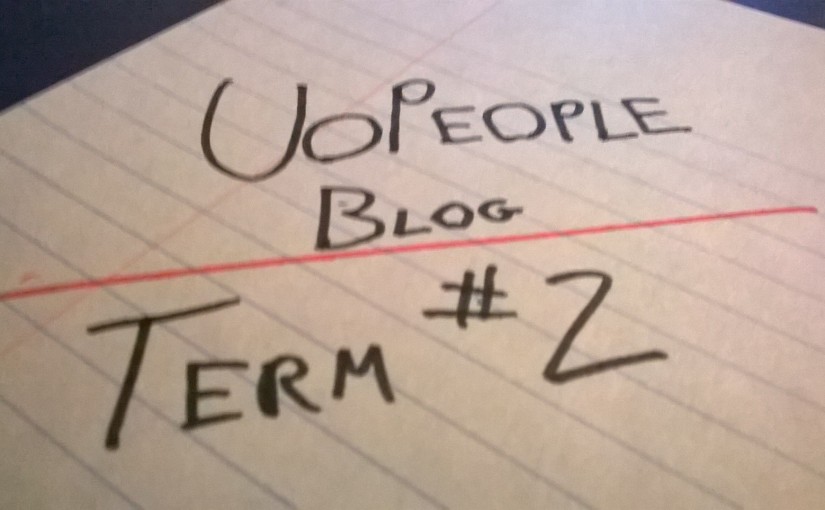 UoPeople
Blog
Term #2